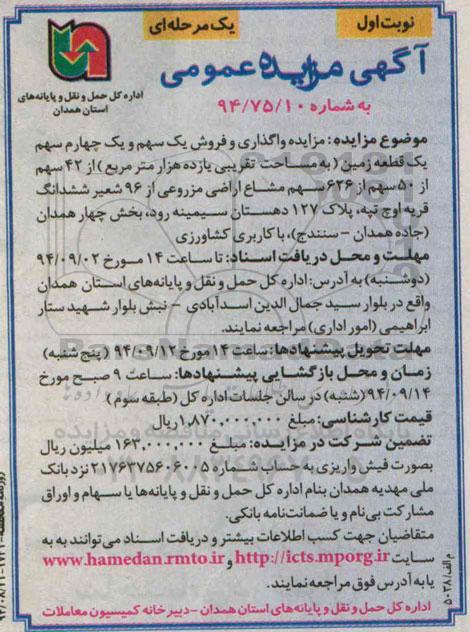 نوبت اول
یک مرحله‌ای
آگهی مزایده عمومی
به شماره ۹۴/۷۵/۱۰
اداره کل حمل و نقل و پایانه‌های
استان همدان
موضوع مزایده: مزایده واگذاری و فروش یک سهم و یک چهارم سهم
یک قطعه زمین (به مساحت تقریبی یازده هزار متر مربع) از ۴۲ سهم
از ۵۰ سهم از ۶۳۶ سهم مشاع اراضی مزروعی از ۹۶ شعیر ششدانگ
قریه اوچ تپه، پلاک ۱۲۷ دهستان سیمینه رود، بخش چهار همدان
(جاده همدان - سنندج)، با کاربری کشاورزی
مهلت و محل دریافت اسناد: تا ساعت ۱۴ مورخ ۹۴/۰۹/۰۲
(دوشنبه) به آدرس: اداره کل حمل و نقل و پایانه‌های استان همدان
واقع در بلوار سید جمال الدین اسدآبادی - نبش بلوار شهید ستار
ابراهیمی (امور اداری) مراجعه نمایند.
مهلت تحویل پیشنهادها: ساعت ۱۴ مورخ ۹۴/۰۹/۱۲ (پنج شنبه)
زمان و محل بازگشایی پیشنهادها: ساعت ۹ صبح مورخ
۹۴/۰۹/۱۴ (شنبه) در سالن جلسات اداره کل (طبقه سوم)
قیمت کارشناسی: مبلغ ۱,۸۷۰,۰۰۰,۰۰۰ ریال
تضمین شرکت در مزایده: مبلغ ۱۶۳,۰۰۰,۰۰۰ میلیون ریال
بصورت فیش واریزی به حساب شماره ۲۱۷۶۳۷۵۶۰۶۰۰۵ نزد بانک
ملی مهدیه همدان بنام اداره کل حمل و نقل و پایانه‌ها یا سهام و اوراق
مشارکت بی‌نام و یا ضمانت‌نامه بانکی.
متقاضیان جهت کسب اطلاعات بیشتر و دریافت اسناد می‌توانند به به
سایت http://icts.mporg.ir و www.hamedan.rmto.ir
یا به آدرس فوق مراجعه نمایند.
اداره کل حمل و نقل و پایانه‌های استان همدان - دبیرخانه کمیسیون معاملات
م الف/۵۰۳۸